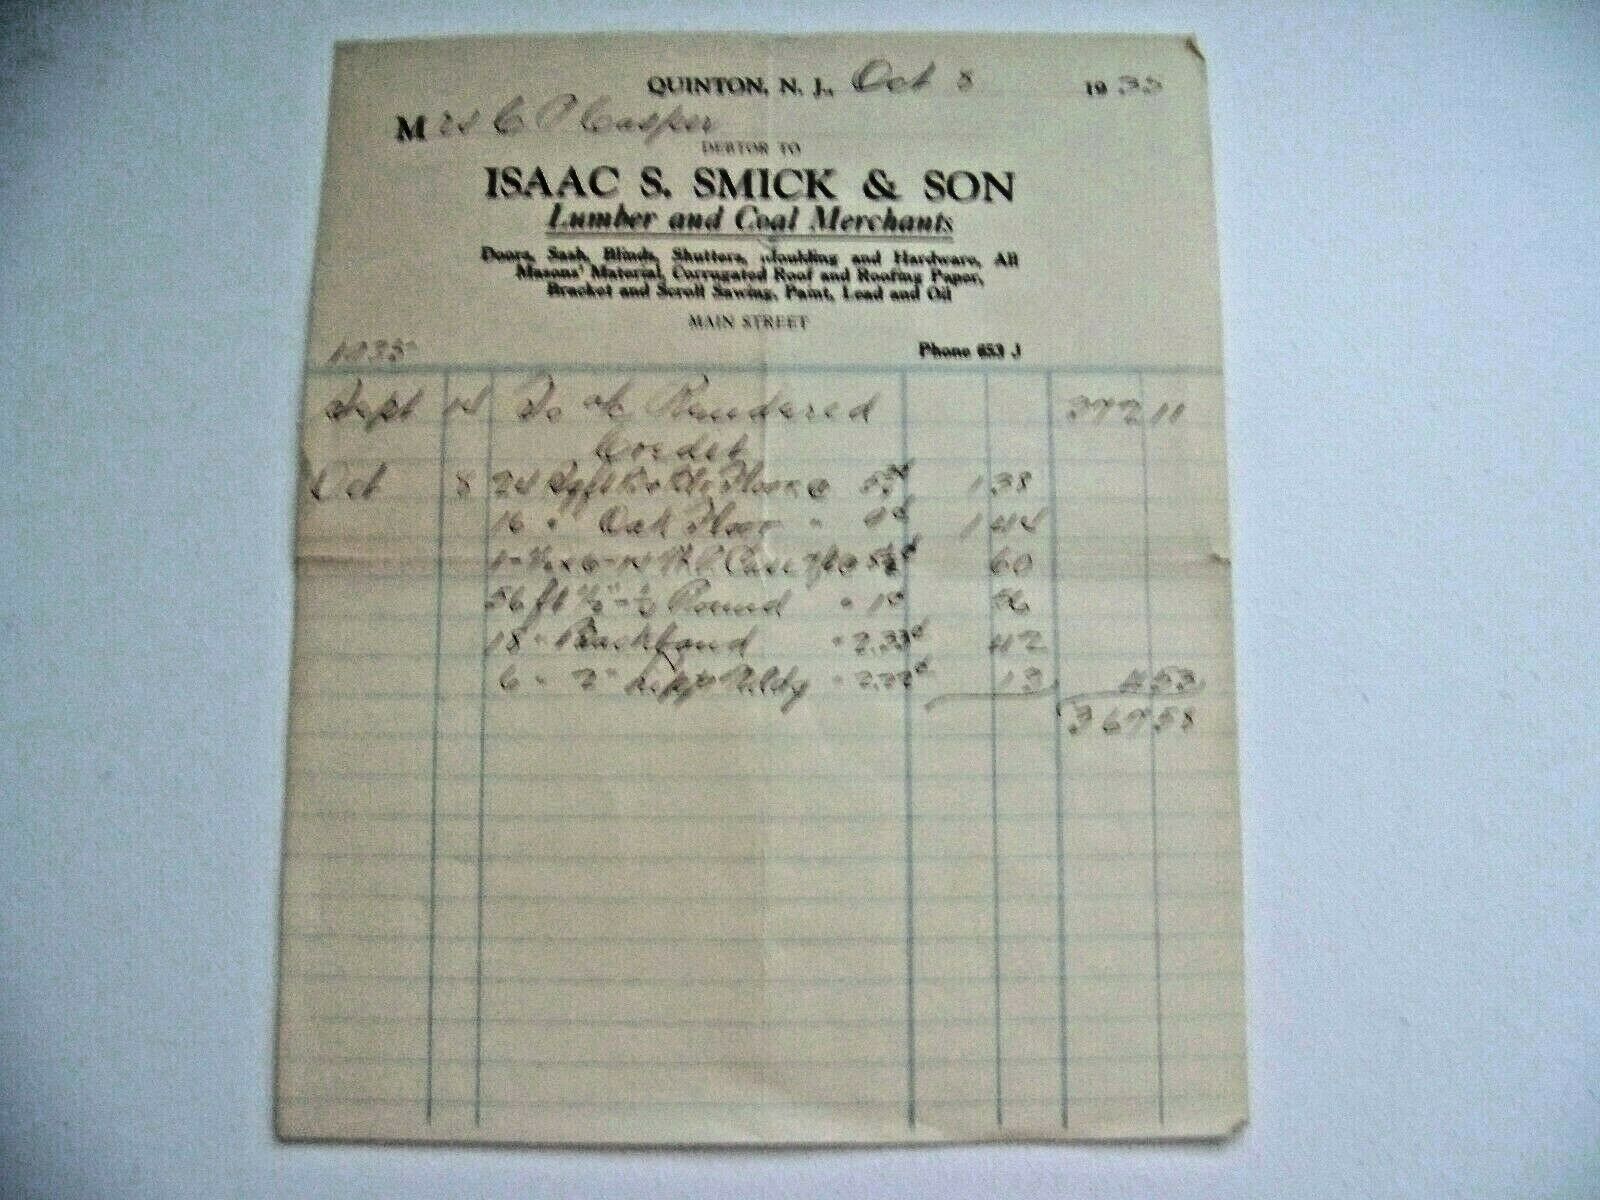 QUINTON, N. J., Oct 8 1935
Mrs C P Casper
DEBTOR TO
ISAAC S. SMICK & SON
Lumber and Coal Merchants
Doors, Sash, Blinds, Shutters, Moulding and Hardware, All
Masons' Material, Corrugated Roof and Roofing Paper,
Bracket and Scroll Sawing, Paint, Lead and Oil
MAIN STREET
Phone 653 J
1935
Sept 14 To a/c Rendered 372 11
Credit
Oct 8 24 Sqft Floor @ 1 38
16 " Oak Floor " 9¢ 1 44
60
56 ft Round " 1¢ 56
18 " Backband " 2.33¢ 42
6 " 2" Mldg " 2.22¢ 13 4 53
367 58